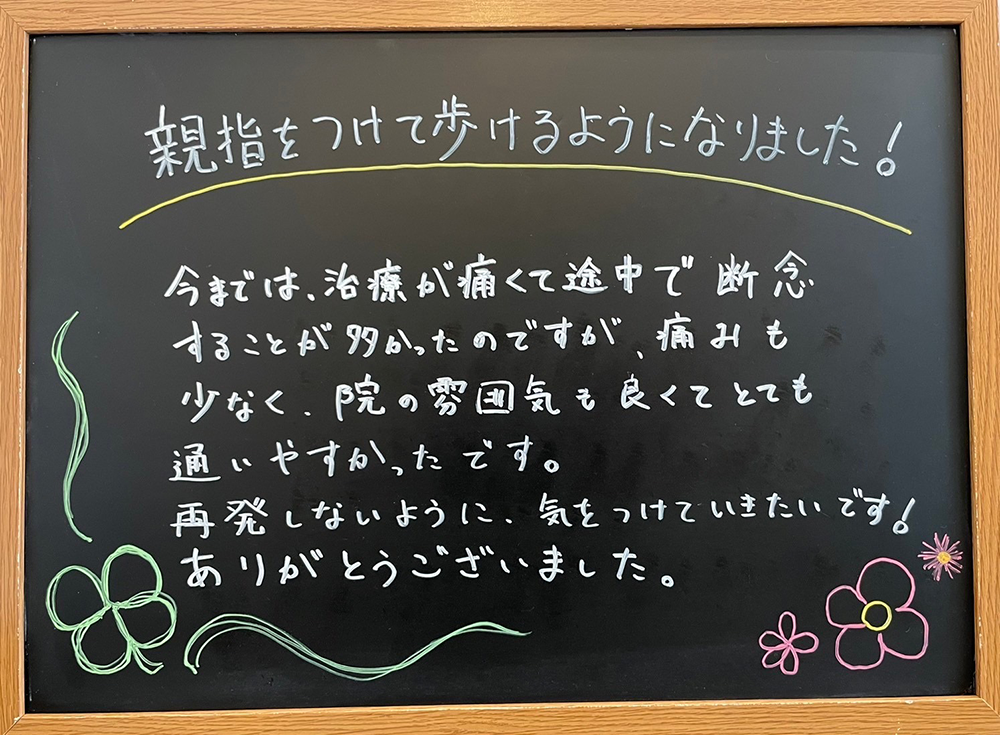 親指をつけて歩けるようになりました!
今までは、治療が痛くて途中で断念
することが多かったのですが、痛みも
少なく、院の雰囲気も良くてとても
通いやすかったです。
再発しないように、気をつけていきたいです!
ありがとうございました。